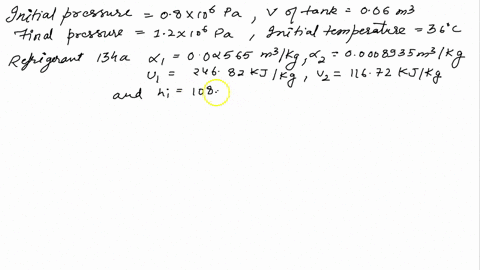 Initial pressure = 0.8×10⁶ Pa, V of tank = 0.06 m3
Final pressure = 1.2×10⁶ Pa, Initial temperature = 36°C
Refrigerant 134a α₁ = 0.02565 m³/kg, α₂ = 0.0008935 m³/kg
U₁ = 246.82 KJ/kg, U₂ = 116.72 KJ/kg
and hi = 108.